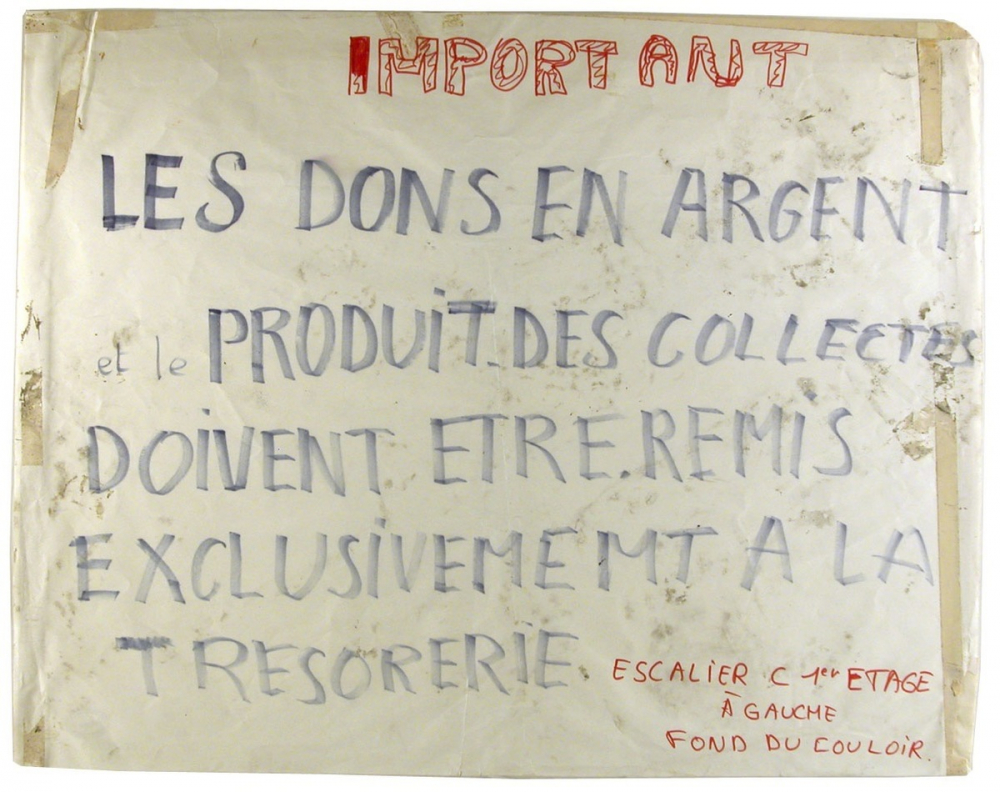 IMPORTANT
LES DONS EN ARGENT
et le PRODUiT DES COLLECTES
DOiVENT ETRE.REMiS
EXCLUSiVEMEMT A LA
TRESORERiE
ESCALiER C 1er ETAGE
À GAUCHE
FOND DU COULOiR.